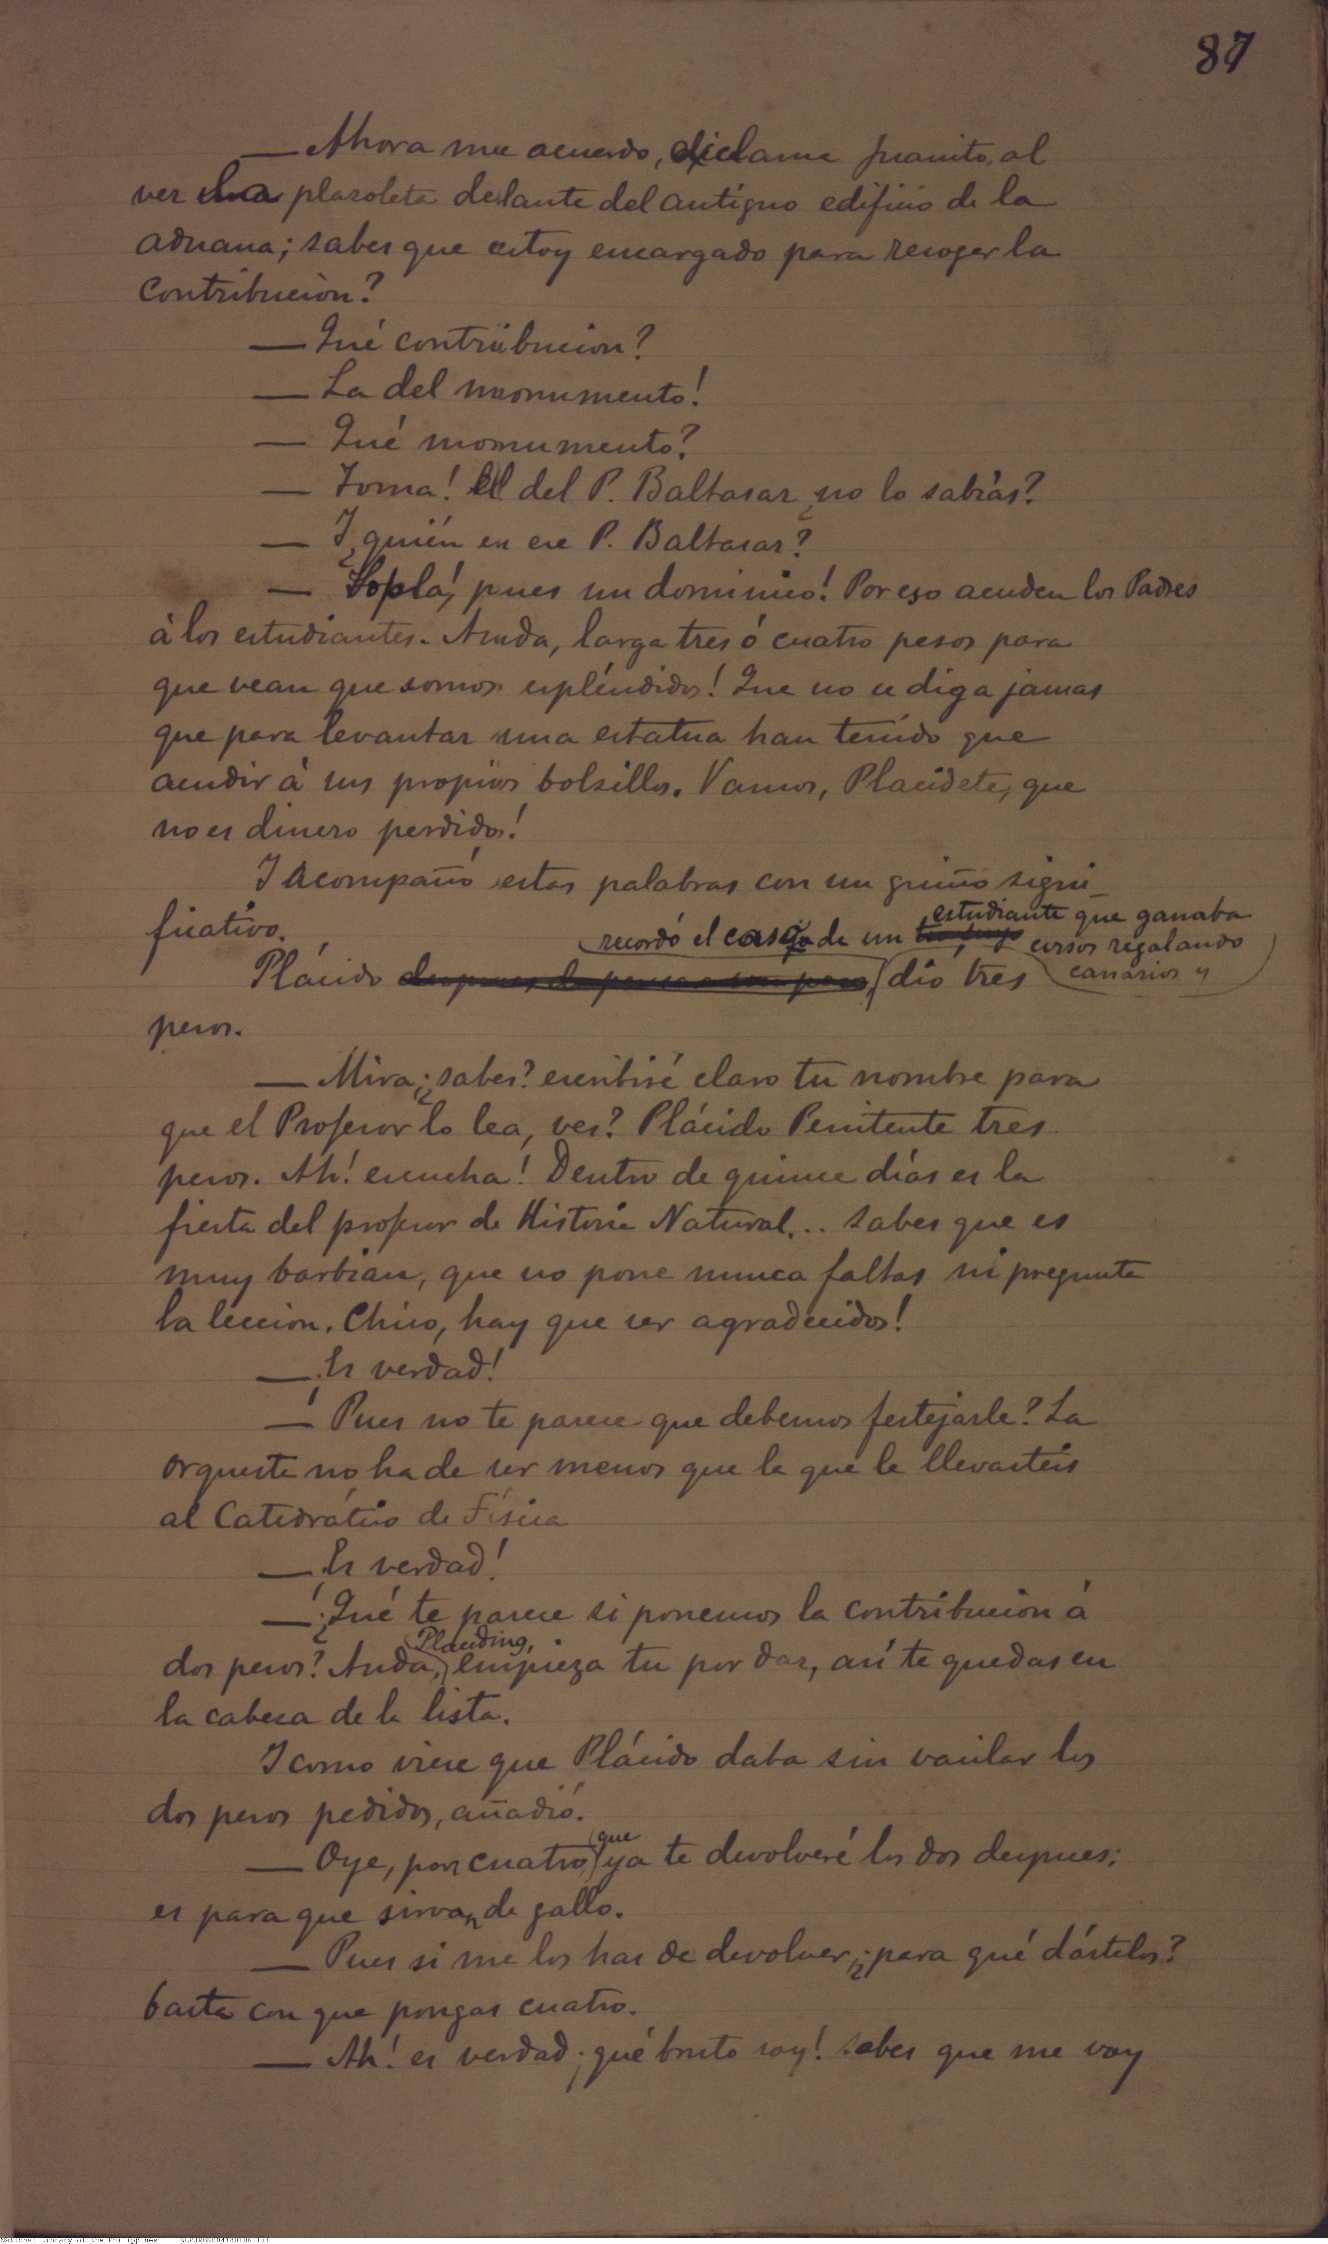 87
— Ahora me acuerdo, exclama Juanito, al
ver la plazoleta delante del antiguo edificio de la
aduana; sabes que estoy encargado para recoger la
contribución?
— Qué contribucion?
— La del monumento!
— Qué monumento?
— Toma! El del P. Baltasar ¿no lo sabías?
— Y ¿quién es ese P. Baltasar?
— Sopla! pues un dominico! Por eso acuden los Padres
á los estudiantes. Anda, larga tres ó cuatro pesos para
que vean que somos espléndidos! Que no se diga jamas
que para levantar una estatua han tenido que
acudir á sus propios bolsillos. Vamos, Placidete, que
no es dinero perdido!
Y acompañó estas palabras con un guiño signi-
ficativo.
recordó el caso de un estudiante que ganaba
cursos regalando
canarios y
Plácido despues de pensar un poco, dio tres
pesos.
— Mira; ¿sabes? escribiré claro tu nombre para
que el Profesor lo lea, ves? Plácido Penitente tres
pesos. Ah! escucha! Dentro de quince días es la
fiesta del profesor de Historia Natural... Sabes que es
muy barbian, que no pone nunca faltas ni pregunta
la leccion. Chico, hay que ser agradecidos!
— Es verdad!
— Pues no te parece que debemos festejarle? La
orquesta no ha de ser menos que la que le llevasteis
al Catedrático de Física
— Es verdad!
— ¿Qué te parece si ponemos la contribucion á
Placiding,
dos pesos? Anda, empieza tu por dar, así te quedas en
la cabeza de la lista.
Y como viese que Plácido daba sin vacilar los
dos pesos pedidos, añadió.
que
— Oye, pon cuatro, ya te devolveré los dos despues;
es para que sirvan de gallo.
— Pues si me los has de devolver, ¿para qué dártelos?
basta con que pongas cuatro.
— Ah! es verdad; ¡qué bruto soy! Sabes que me voy